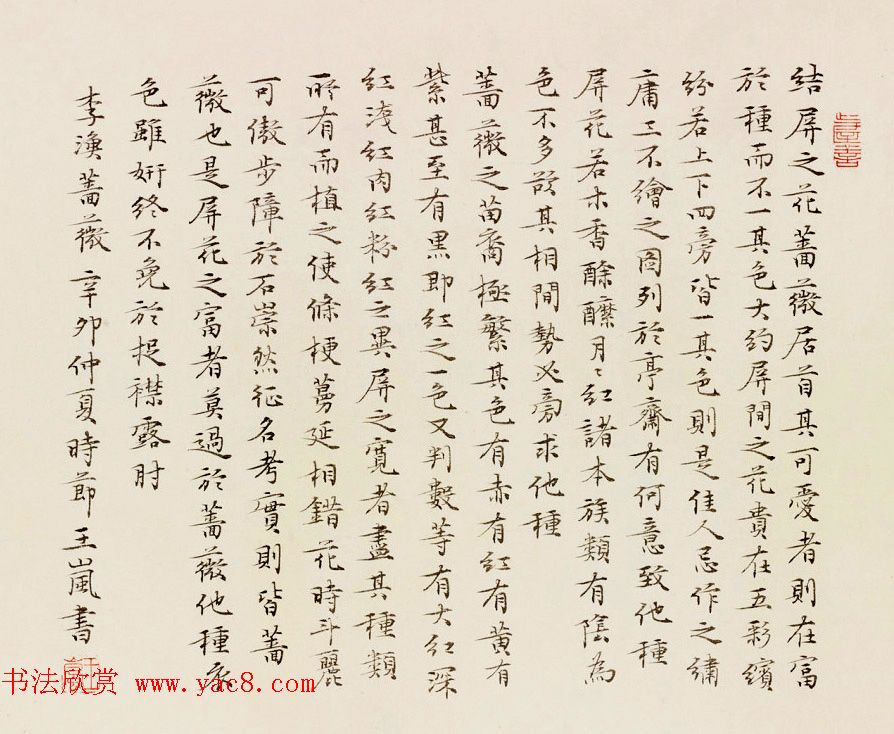 結屏之花薔薇居首其可愛者則在富
於種而不一其色大約屏間之花貴在五彩繽
紛若上下四旁皆一其色則是佳人忌作之繡
庸工不繪之圖列於亭齋有何意致他種
屏花若木香酴醾月〻紅諸本族類有陰為
色不多欲其相間勢必旁求他種
薔薇之苗裔極繁其色有赤有紅有黄有
紫甚至有黒即紅之一色又判數等有大紅深
紅淺紅肉紅粉紅之異屏之寬者盡其種類
所有而植之使條梗蔓延相錯花時斗麗
可傲步障於石崇然征名考實則皆薔
薇也是屏花之富者莫過於薔薇他種衣
色雖妍終不免於捉襟露肘
李渙薔薇 辛卯仲夏時節王嵐書
书法欣赏 www.yac8.com